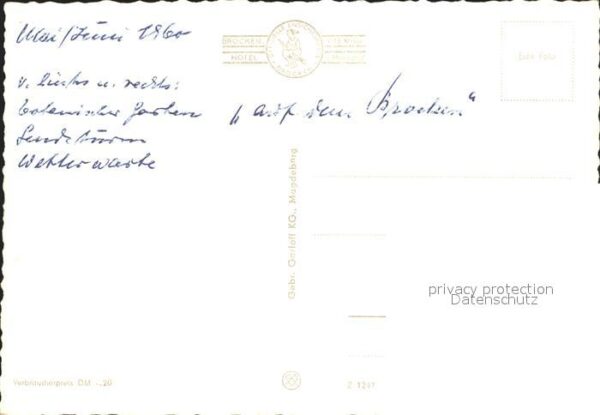 Mai/Juni 1960
BROCKEN
HOTEL
v. links n. rechts:
botanischer Garten
Sendeturm
Wetterwarte
„auf dem Brocken“
Echt Foto
Gebr. Garloff KG., Magdeburg
privacy protection
Datenschutz
Verbraucherpreis DM -,20